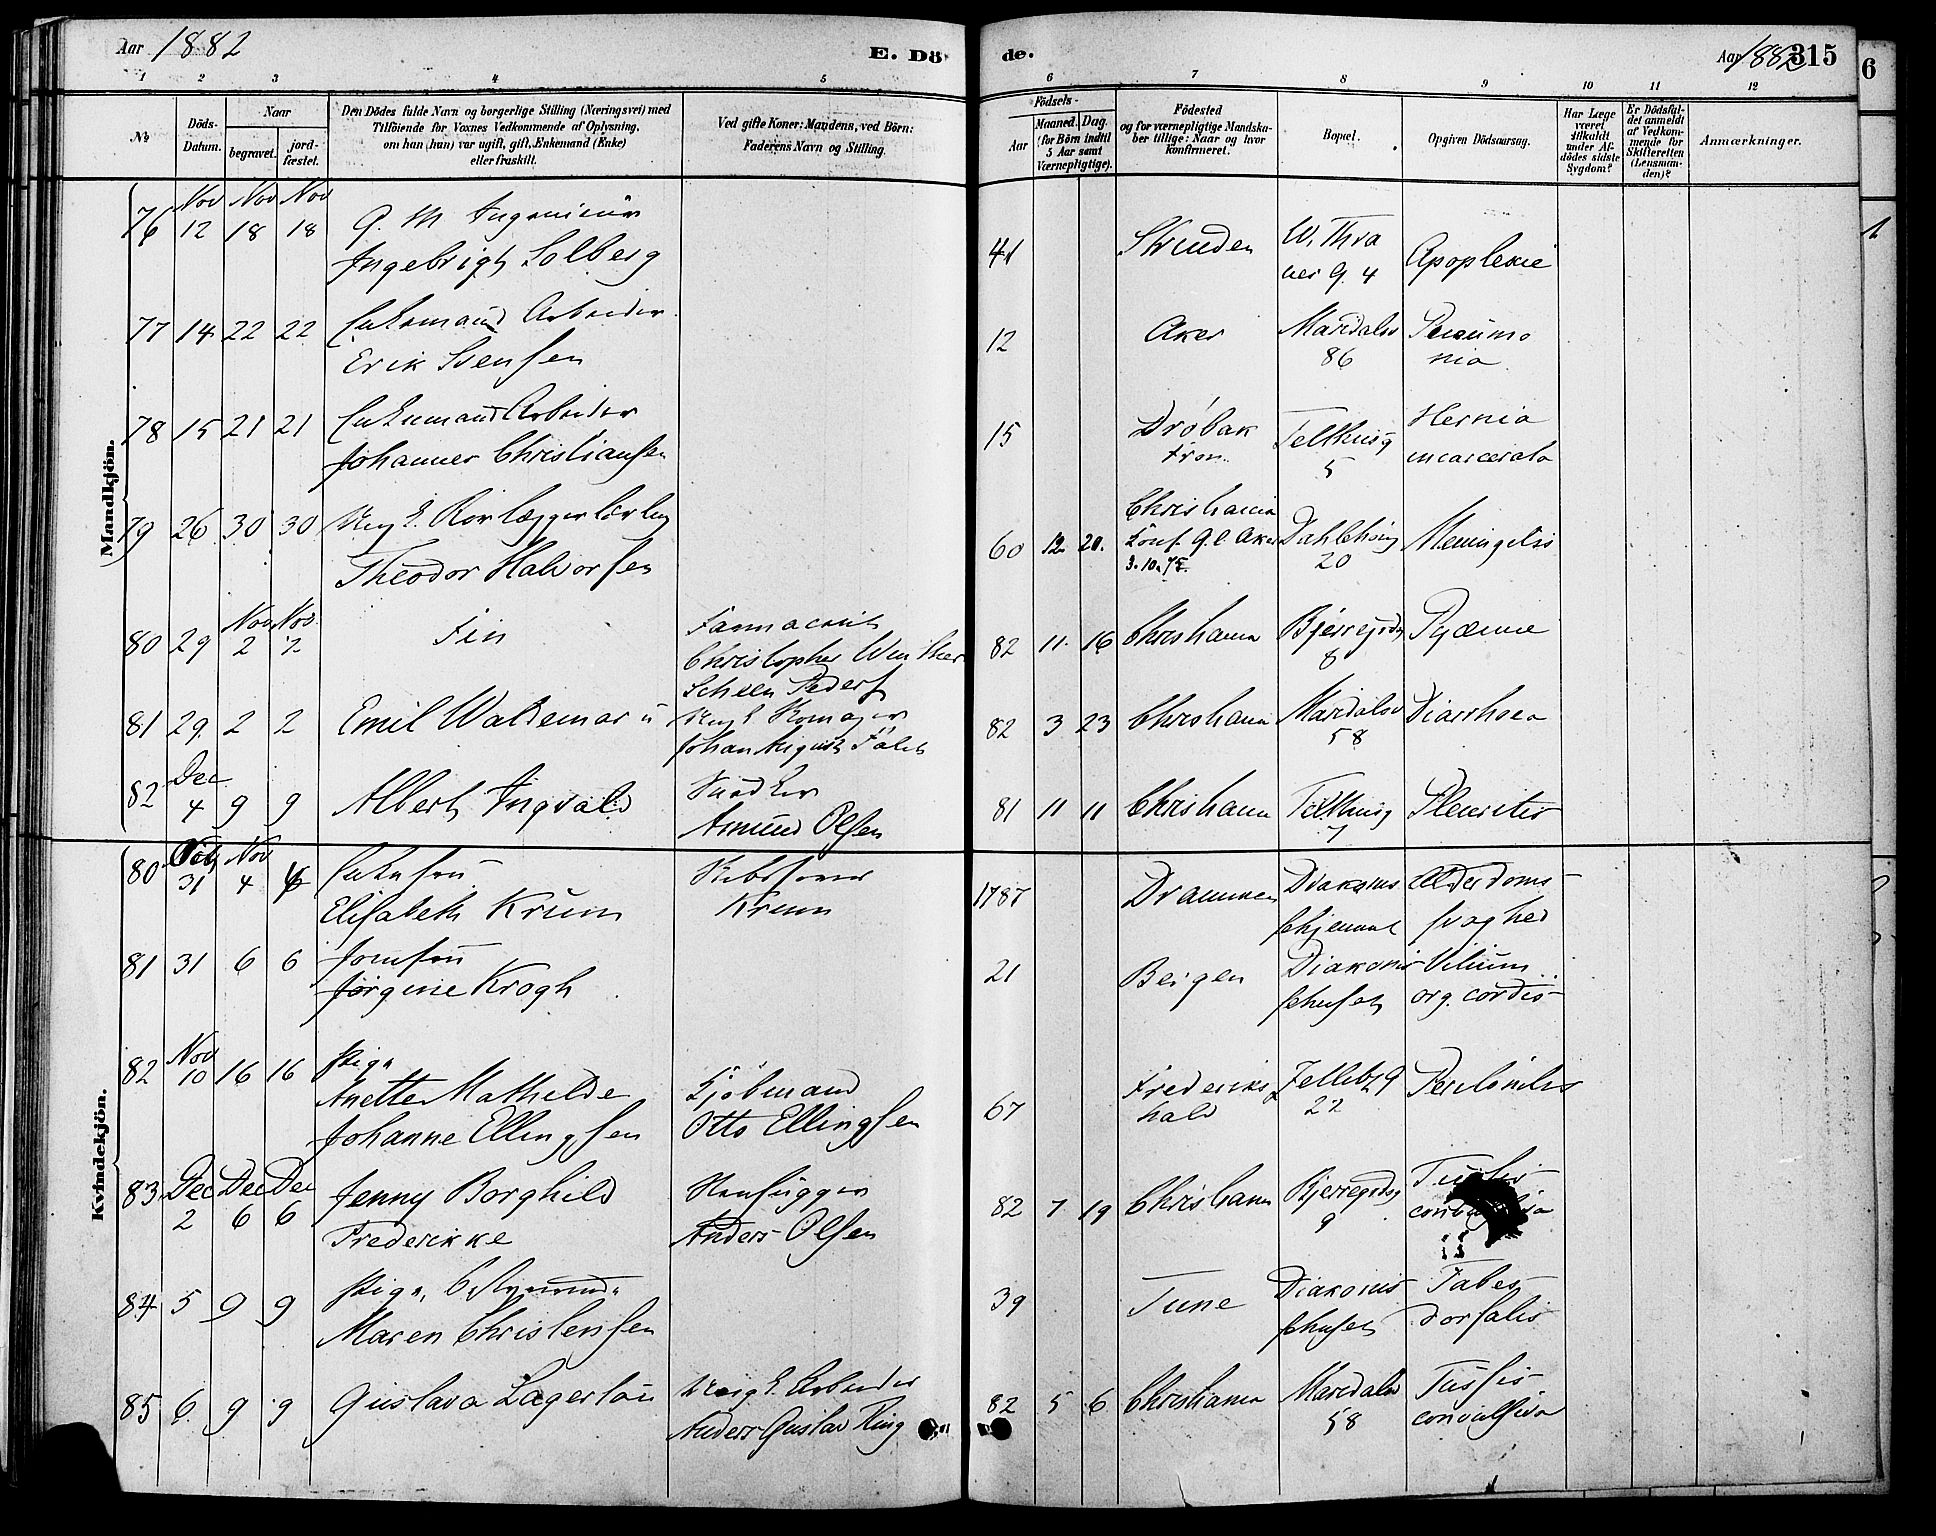 Aar 1882
E. Dö
de.
Aar 1882 315
1 2 3 4 5 6 7 8 9 10 11 12
No
Döds-Datum.
Naar
begravet.
jord-fæstet.
Den Dödes fulde Navn og borgerlige Stilling (Næringsvei) med
Tilföiende for Voxnes Vedkommende af Oplysning,
om han (hun) var ugift, gift, Enkemand (Enke)
eller fraskilt.
Ved gifte Koner: Mandens, ved Börn:
Faderens Navn og Stilling.
Födsels-
Aar
Maaned. Dag.
(for Börn indtil
5 Aar samt
Værnepligtige).
Födested
og for værnepligtige Mandska-
ber tillige: Naar og hvor
konfirmeret.
Bopæl.
Opgiven Dödsaarsag.
Har Læge
været
tilkaldt
under Af-
dödes sidste
Sygdom?
Er Dödsfal-
det anmeldt
af Vedkom-
mende for
Skifteretten
(Lensman-
den)?
Anmærkninger.
Mandkjön.
76 Nov 12 Nov 18 Nov 18 G. M Ingenieur
Ingebrigt Solberg 41 Strinden W. Thra
nes G. 4 Apoplexie
77 14 22 22 Enkemand Arbeider
Erik Svensen 12 Aker Maridalsv
86 Pneumo
nia
78 15 21 21 Enkemand Arbeider
Johannes Christiansen 15 Dröbak
Telthusg
5 Hernia
incarcerata
79 26 30 30 Ung K. Rörlæggerlærling
Theodor Halvorsen 60 12 20. Christiania
Konf. G. A. Aker
3.10.75. Dahlbhsvg
20 Meningitis
80 29 Nov 2 Nov 2 Fin Farmaceut
Christopher Winther
Scheen Peders 82 11 16 Christiania Bjerregdsg
8 Pyæmie
81 29. 2 2 Emil Waldemar u Ung K Skomager
Johan August 82 3 23 Christiania Maridalsv
58 Diarrhoea
82 Dec 4 9 9 Albert Ingvald Snedker
Asmund Olsen 81 11 11 Christiania Telthusg
7 Pleuritis
Kvindekjön.
80 Oct 31 Nov 4 4 Enkefru
Elisabeth Krum Skibsfører
Krum 1787 Drammen Diakonis
sehjemmet Alderdoms-
svaghed
81 31 6 6 Jomfru
Jørgine Krogh 21 Bergen Diakonis
sehuset Vitium
org. cordis
82 Nov 10 16 16 Pige
Anette Mathilde
Johanne Ellingsen Kjøbmand
Otto Ellingsen 67 Frederiks
hald Zetlitz g
22 Peritonitis
83 Dec 2 Dec 6 Dec 6 Jenny Borghild
Frederikke Stenhugger
Anders Olsen 82 7 19 Christiania Bjerregdsg
9 Tussis
convulsiva
84 5 9 9 Pige,
Maren Christensen 39 Tune Diakonis
sehuset Tabes
dorsalis
85 6. 9 9 Gustava Lagertau Ung K. Arbeider
Anders Gustav Ring 82 5 6 Christiania Maridalsv
58 Tussis
convulsiva
6